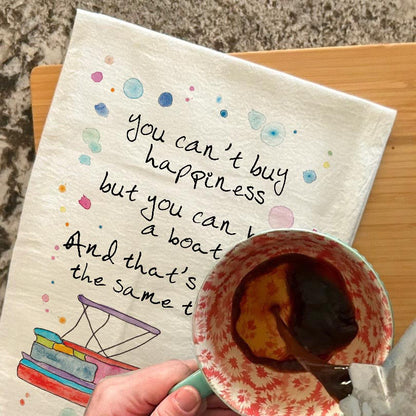 you can't buy
happiness
but you can
a boat
And that's
the same